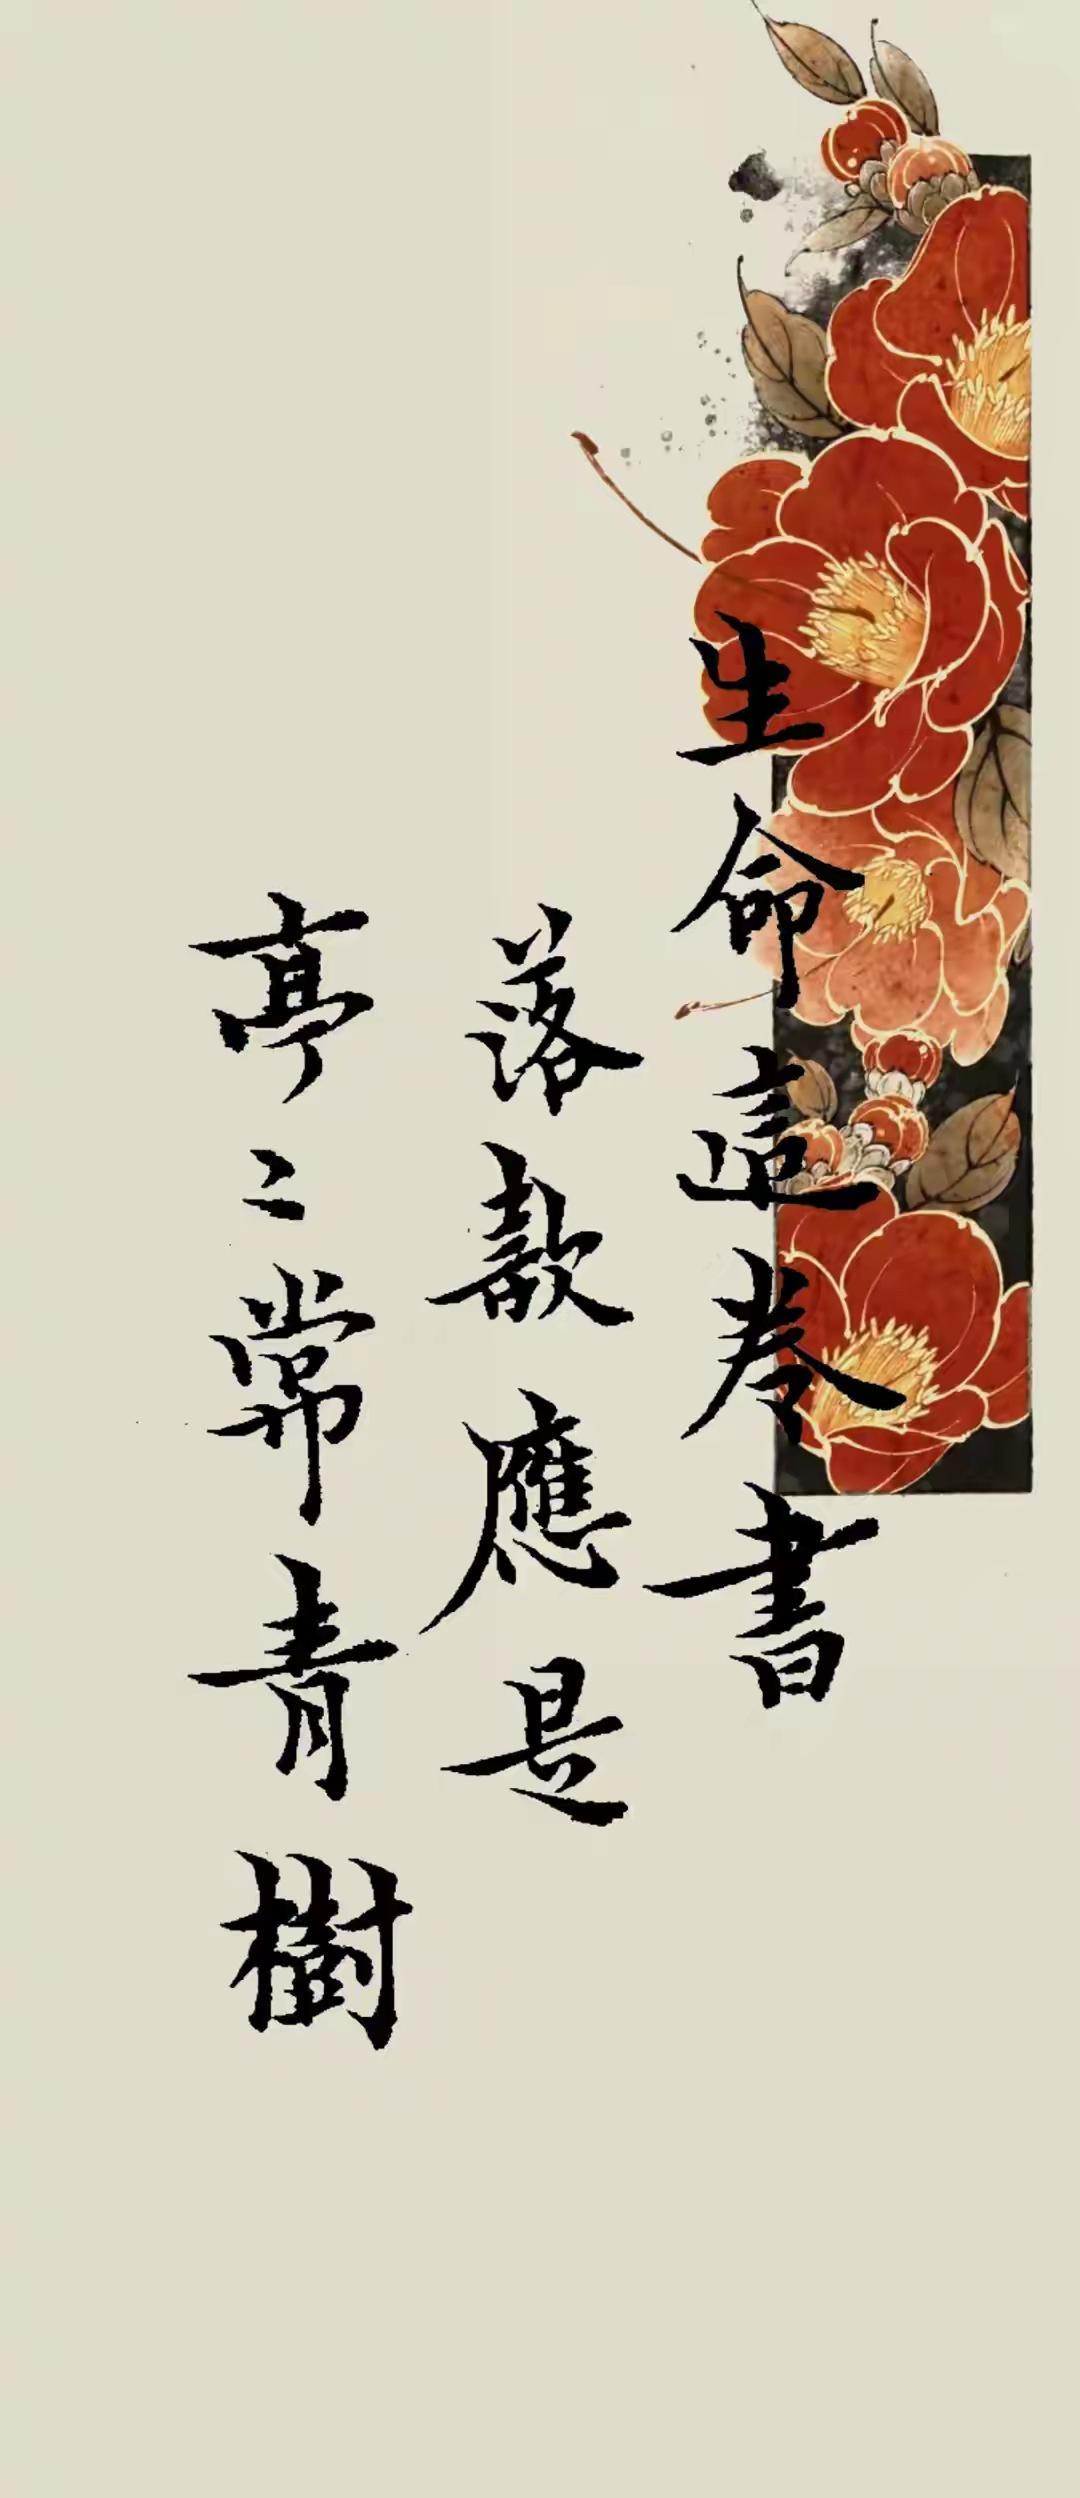 生命這卷書
落款應是
亭〻常青樹